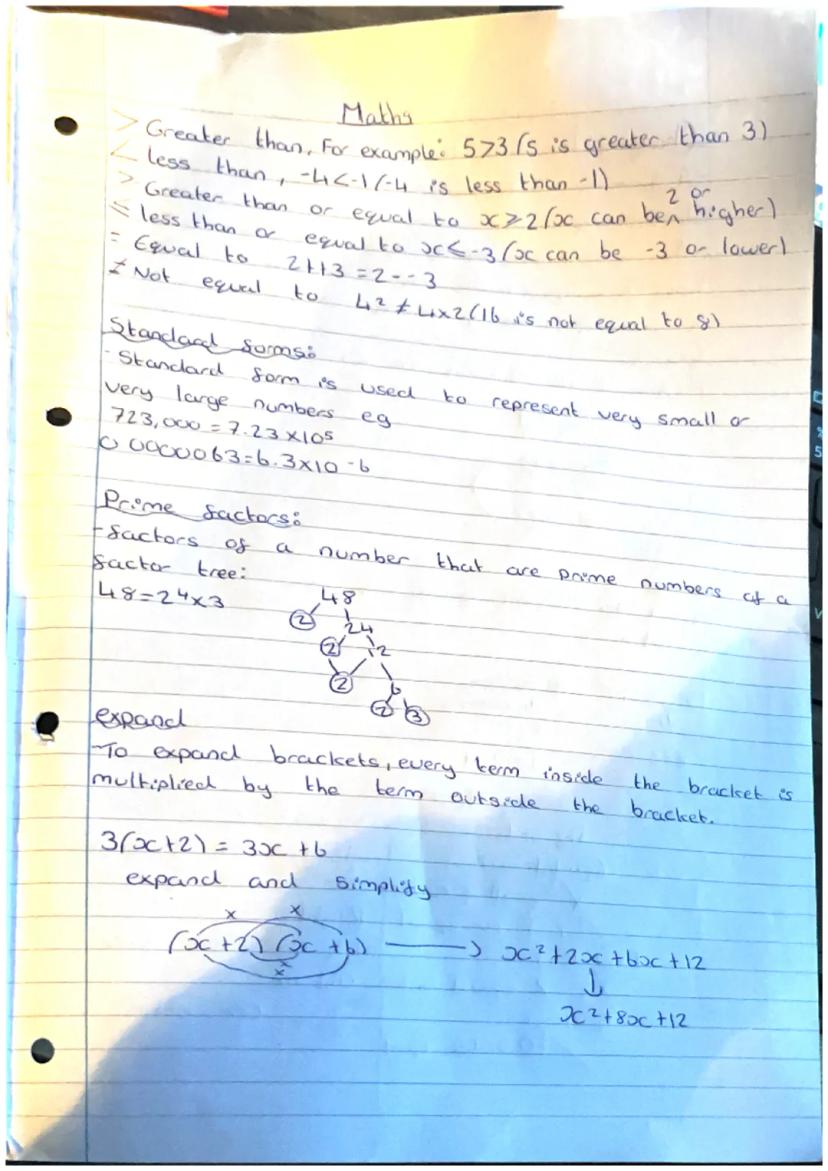 Maths
> Greater than, For example: 5>3 (5 is greater than 3)
< less than, -4<-1 (-4 is less than -1)
> Greater than or equal to x⩾2 (x can be 2 or higher)
≤ less than or equal to x≤-3 (x can be -3 or lower)
= Equal to 2++3=2--3
≠ Not equal to 4² ≠ 4×2 (16 is not equal to 8)
Standard forms:
- Standard form is used to represent very small or
very large numbers eg
723,000 = 7.23 ×10⁵
0 0000063=6.3×10 -6
Prime factors:
- factors of a number that are prime numbers of a
factor tree:
48=2⁴×3
48
2 24
2 12
2 6
2 3
expand
-To expand brackets, every term inside the bracket is
multiplied by the term outside the bracket.
3(x+2) = 3x +6
expand and simplify
x x
(x +2) (x +6) → x²+2x+6x+12
x
x
↓
x²+8x+12